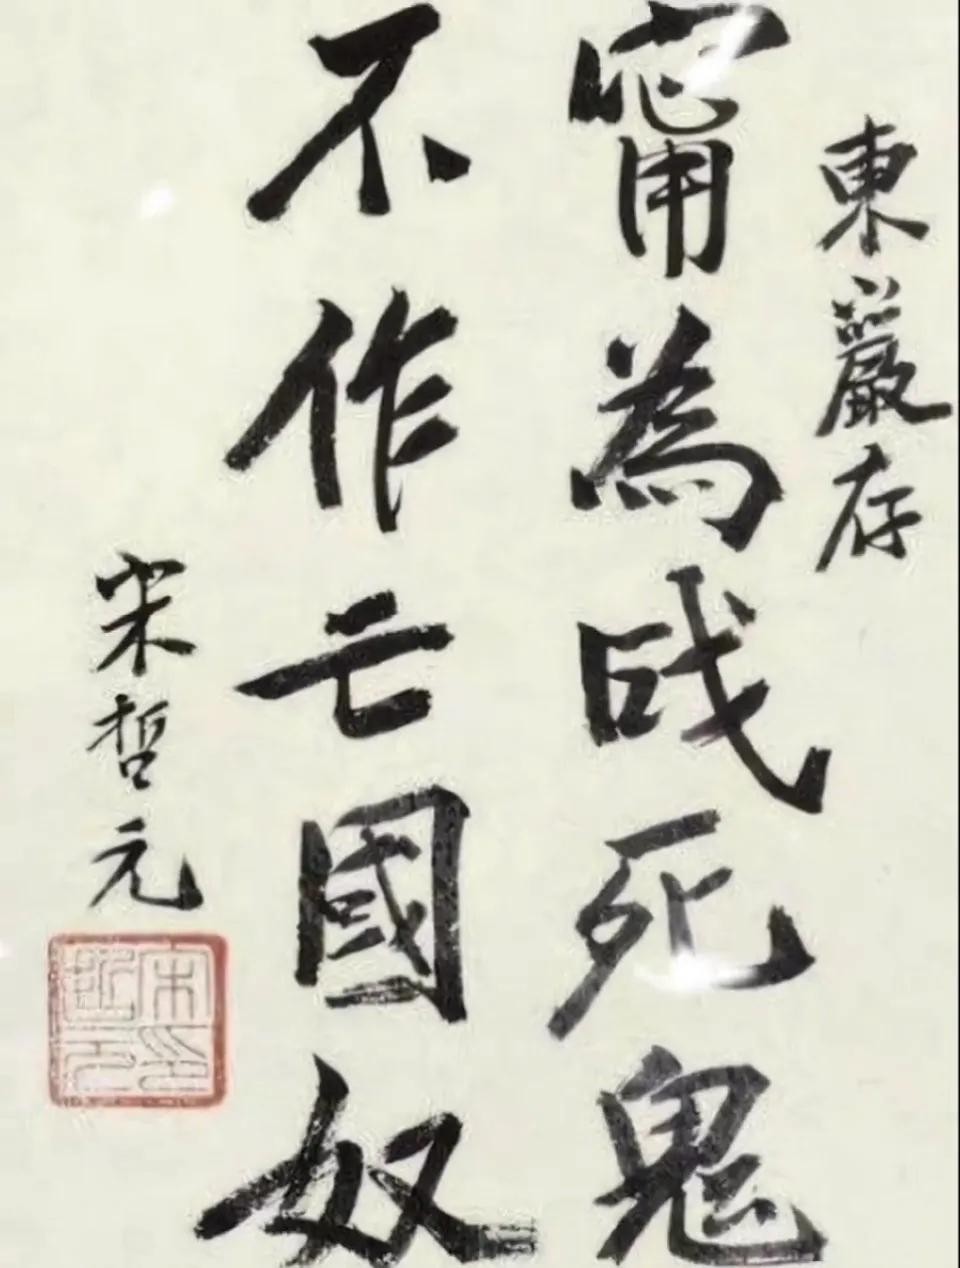 東巖存
甯為战死鬼
不作亡國奴
宋哲元
宋哲元印